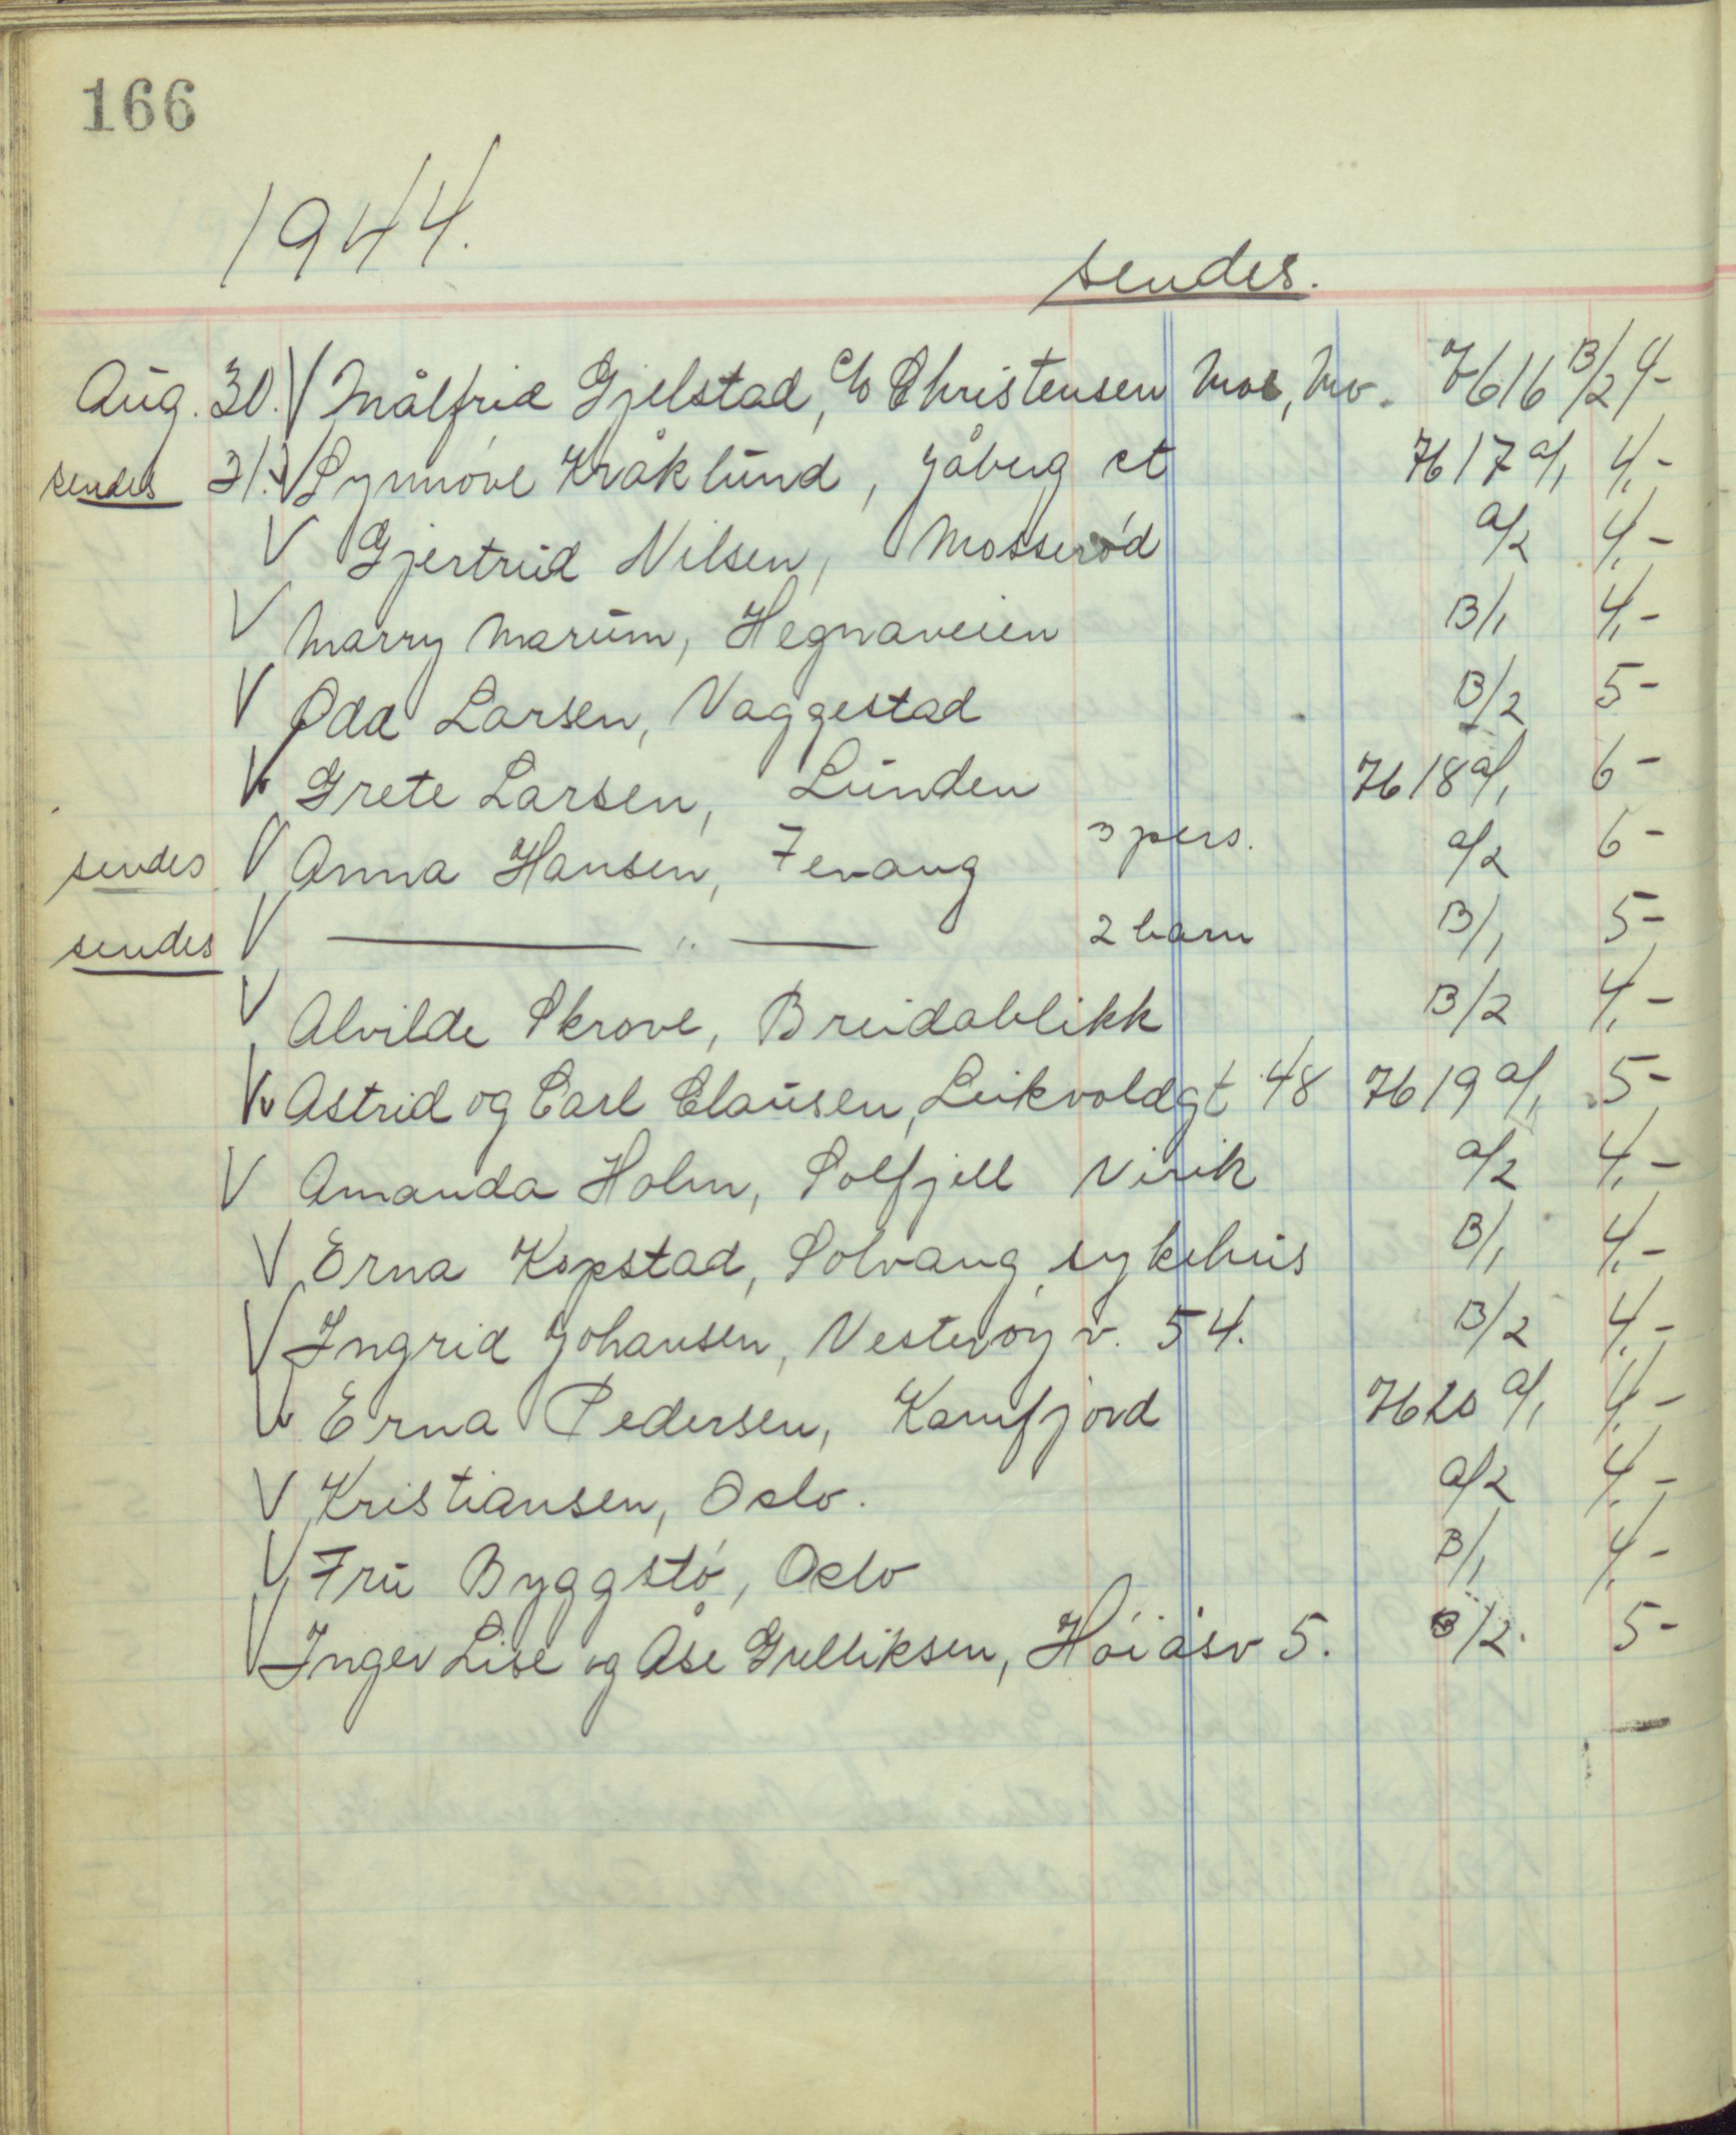 166
1944.
sendes.
Aug. 30. V Målfrid Gjelstad, c/o Christensen Moe, Mo. 7616 B/2 4,-
sendes 31. V Synnøve Kråklund, Jåberg st 7617 a/1 4,-
V Gjertrud Nilsen, Mosserød a/2 4,-
V Marry Marum, Hegnaveien B/1 4,-
V Odd Larsen, Vaggestad B/2 5-
V Grete Larsen, Lunden 7618 a/1 6-
sendes V Anna Hansen, Fevang 3 pers. a/2 6-
sendes V —— " —— 2 barn B/1 5-
V Alvilde Skrove, Breidablikk B/2 4,-
V Astrid og Carl Clausen, Leikvoldgt 48 7619 a/1 5-
V Amanda Holm, Solfjell Virik a/2 4,-
V Erna Kopstad, Solvang sykehus B/1 4,-
V Ingrid Johansen, Vesterøy v. 54. B/2 4,-
V Erna Pedersen, Kamfjord 7620 a/1 4,-
V Kristiansen, Oslo. a/2 4,-
V Fru Byggstø, Oslo B/1 4,-
V Inger Lise og Åse Gulliksen, Høiåsv 5. B/2. 5-